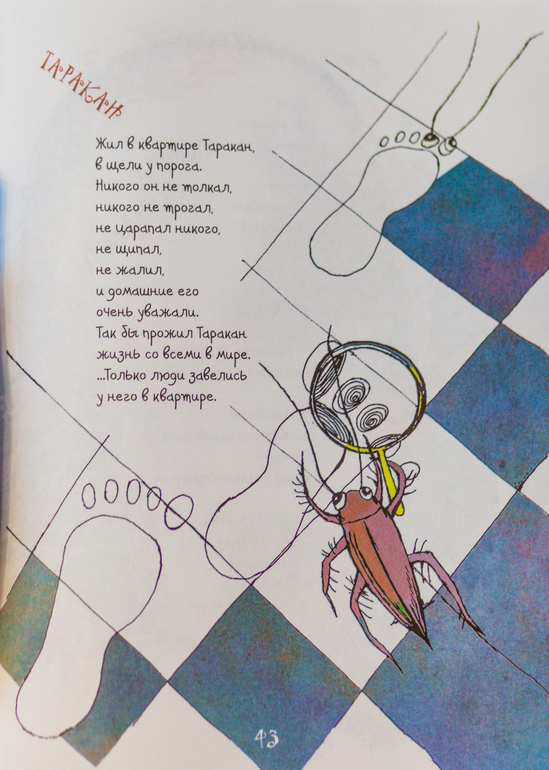 ТАРАКАН
Жил в квартире Таракан,
в щели у порога.
Никого он не толкал,
никого не трогал,
не царапал никого,
не щипал,
не жалил,
и домашние его
очень уважали.
Так бы прожил Таракан
жизнь со всеми в мире.
...Только люди завелись
у него в квартире.
43